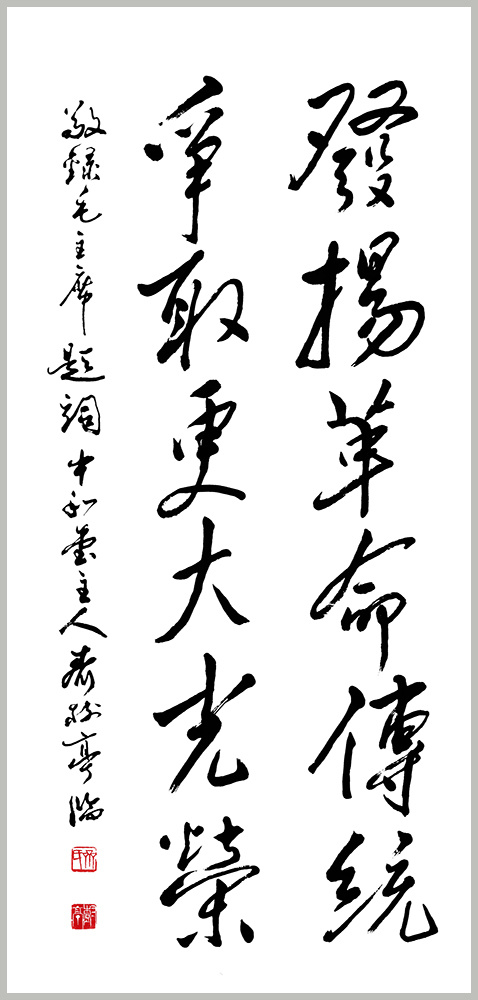 發揚革命傳統
爭取更大光榮
敬錄毛主席題詞中和堂主人秦樹亭臨